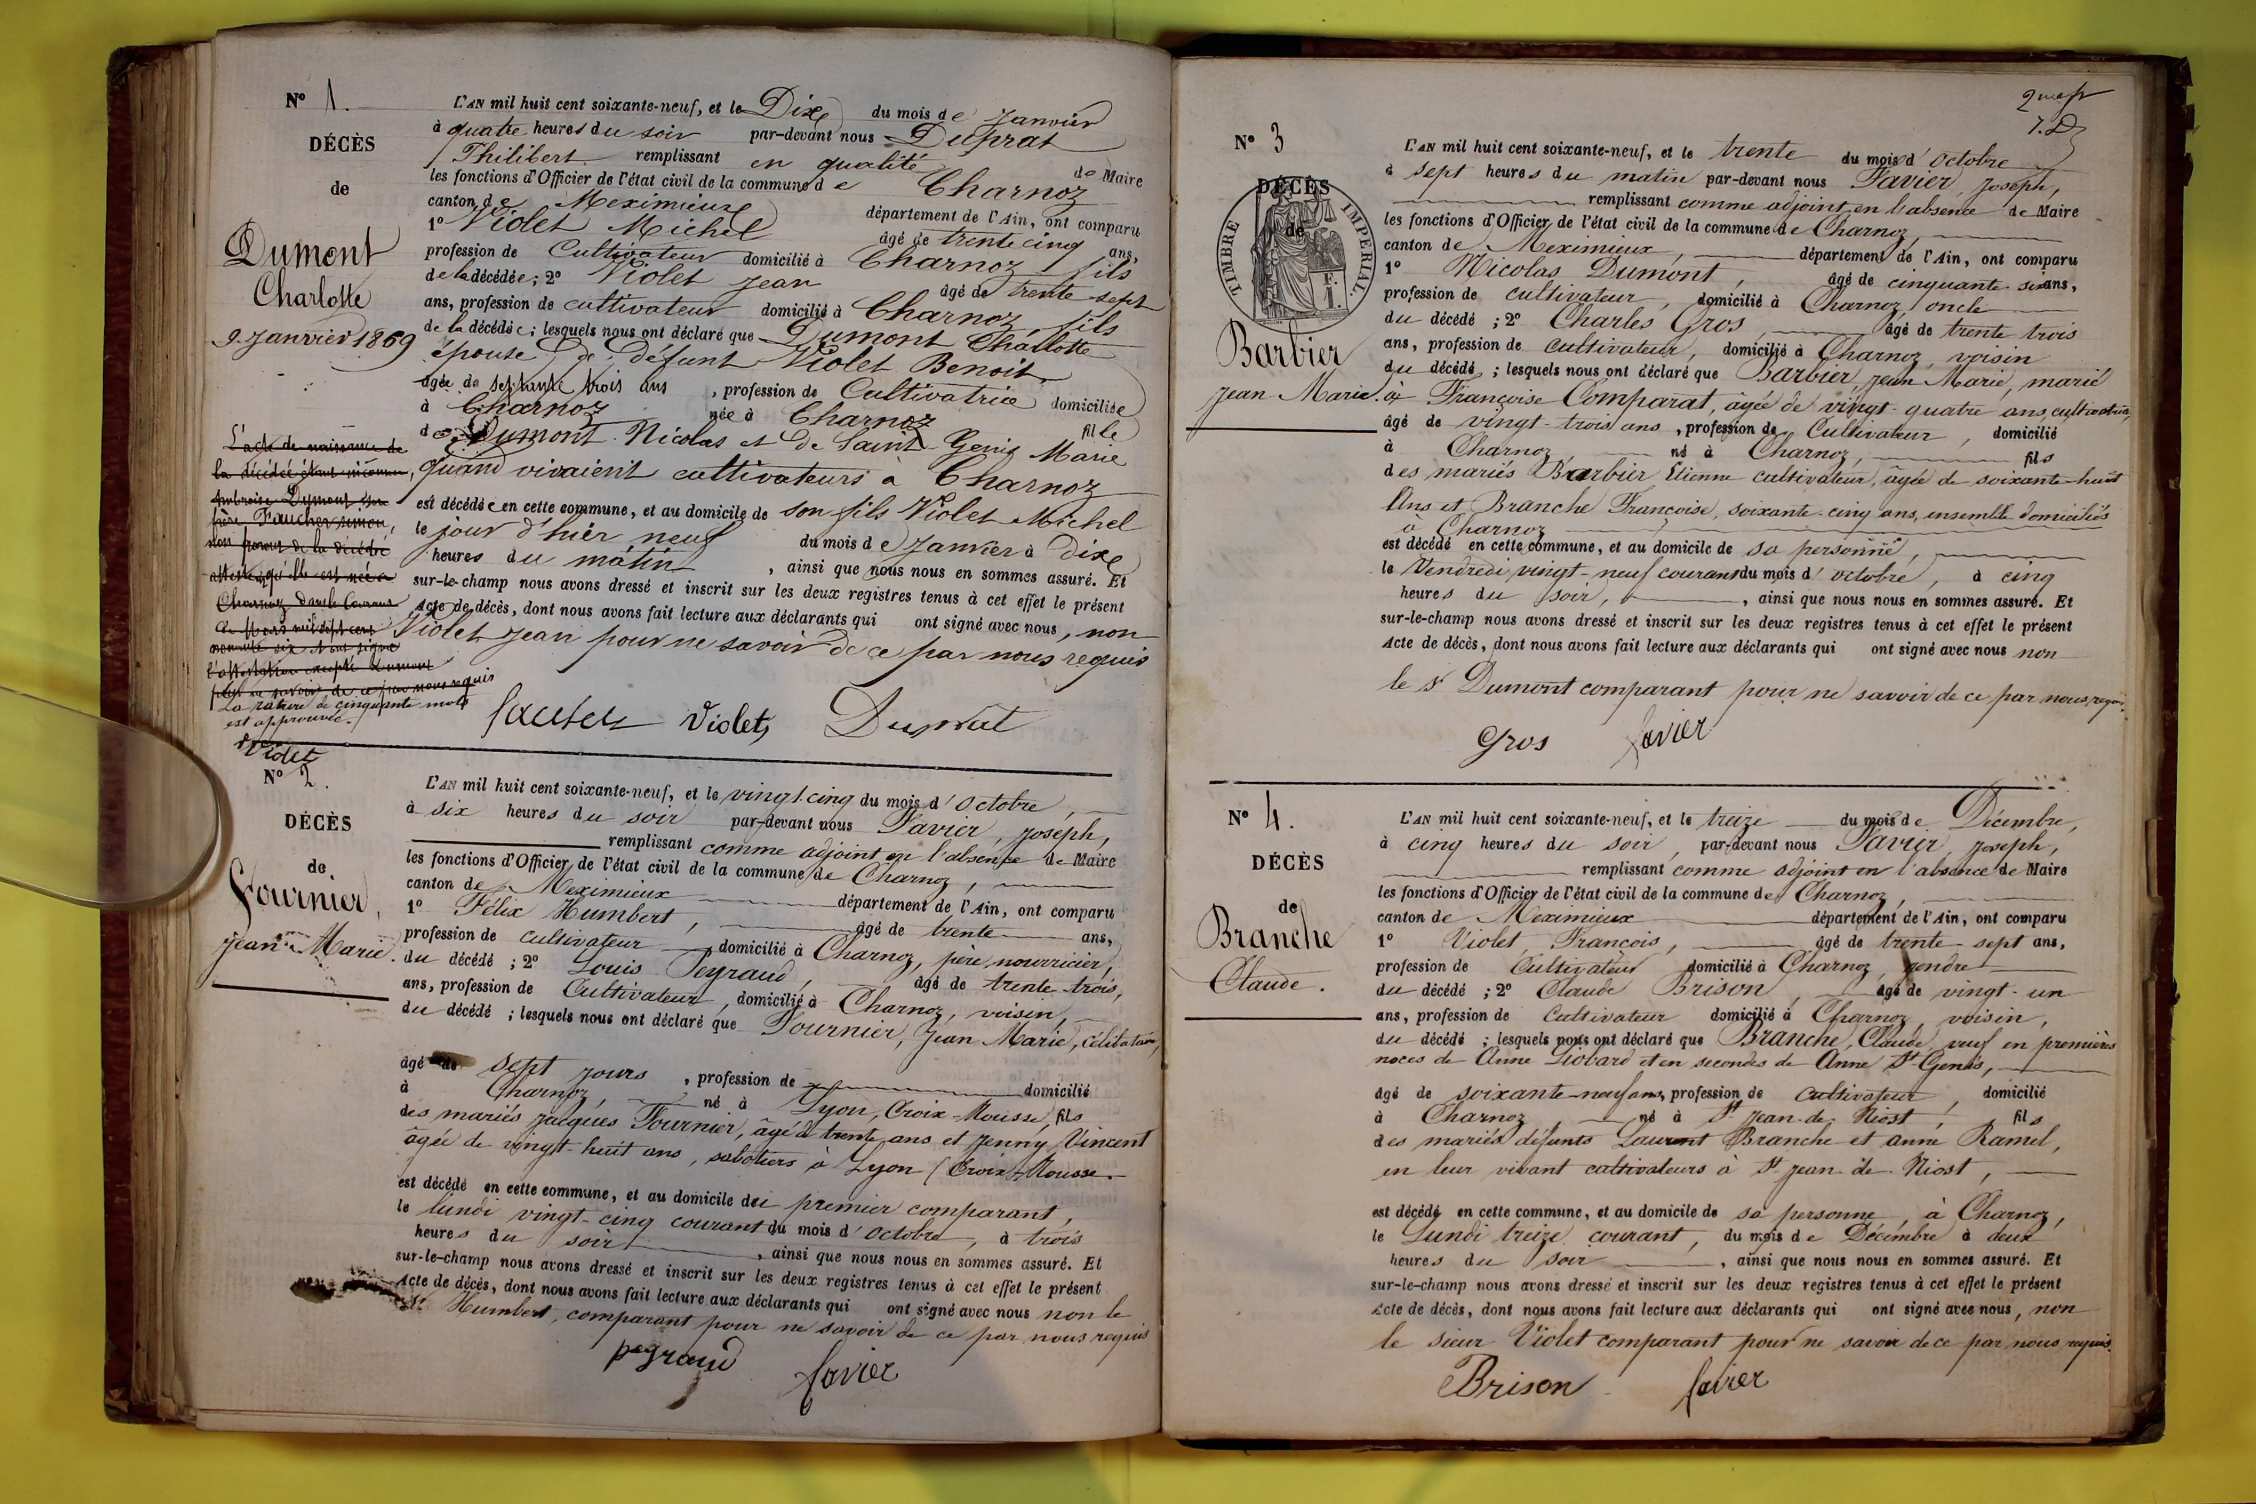 N° 1.
DÉCÈS
de
Dumont
Charlotte
9 Janvier 1869
L'AN mil huit cent soixante-neuf, et le Dix du mois de Janvier
à quatre heures du soir par-devant nous Duprat
Philibert remplissant en qualité de Maire
les fonctions d'Officier de l'état civil de la commune de Charnoz
canton de Meximieux département de l'Ain, ont comparu
1° Violet Michel âgé de trente cinq ans,
profession de Cultivateur domicilié à Charnoz fils
de la décédée; 2° Violet Jean âgé de trente-sept
ans, profession de cultivateur domicilié à Charnoz fils
de la décédée; lesquels nous ont déclaré que Dumont Charlotte
épouse de défunt Violet Benoit
agée de septante trois ans, profession de Cultivatrice domiciliée
à Charnoz née à Charnoz fille
de Dumont Nicolas et de Saint Genis Marie
quand vivaient cultivateurs à Charnoz
est décédée en cette commune, et au domicile de son fils Violet Michel
le jour d'hier neuf du mois de Janvier à dix
heures du matin, ainsi que nous nous en sommes assuré. Et
sur-le-champ nous avons dressé et inscrit sur les deux registres tenus à cet effet le présent
Acte de décès, dont nous avons fait lecture aux déclarants qui ont signé avec nous, non
Violet Jean pour ne savoir de ce par nous requis
L'acte de naissance de
la décédée étant inconnu,
Ambroise Dumont son
frère Faucher Simon,
non parent de la décédé
attestent qu'elle est née à
Charnoz dans le courant
de Mars mil sept cent
nonante six et ont signé
l'attestation excepté Dumont
pour ne savoir de ce par nous requis
La rature de cinquante mots
est approuvée.
Violet
Violet Duprat
N° 2.
DÉCÈS
de
Fournier,
Jean-Marie.
L'AN mil huit cent soixante-neuf, et le vingt-cinq du mois d'Octobre,
à six heures du soir par-devant nous Favier, Joseph,
remplissant comme adjoint en l'absence de Maire
les fonctions d'Officier de l'état civil de la commune de Charnoz,
canton de Meximieux département de l'Ain, ont comparu
1° Félix Humbert, âgé de trente ans,
profession de cultivateur domicilié à Charnoz, père nourricier,
du décédé; 2° Louis Peyraud, âgé de trente-trois,
ans, profession de Cultivateur, domicilié à Charnoz, voisin
du décédé; lesquels nous ont déclaré que Fournier, Jean Marie, célibataire,
âgé de sept jours, profession de domicilié
à Charnoz, né à Lyon, Croix-Rousse, fils
des mariés Jacques Fournier, âgé de trente ans et Jenny Vincent
âgée de vingt-huit ans, sabotiers à Lyon (Croix-Rousse.
est décédé en cette commune, et au domicile du premier comparant,
le lundi vingt-cinq courant du mois d'Octobre, à trois
heures du soir, ainsi que nous nous en sommes assuré. Et
sur-le-champ nous avons dressé et inscrit sur les deux registres tenus à cet effet le présent
Acte de décès, dont nous avons fait lecture aux déclarants qui ont signé avec nous non le
Sr Humbert, comparant pour ne savoir de ce par nous requis
peyraud favier
N° 3
DÉCÈS
de
TIMBRE IMPÉRIAL.
Barbier
Jean Marie.
L'AN mil huit cent soixante-neuf, et le trente du mois d'Octobre
à sept heures du matin par-devant nous Favier, Joseph,
remplissant comme adjoint en l'absence de Maire
les fonctions d'Officier de l'état civil de la commune de Charnoz,
canton de Meximieux, département de l'Ain, ont comparu
1° Nicolas Dumont, âgé de cinquante-six ans,
profession de cultivateur, domicilié à Charnoz, oncle
du décédé; 2° Charles Gros, âgé de trente trois
ans, profession de cultivateur, domicilié à Charnoz, voisin
du décédé; lesquels nous ont déclaré que Barbier, Jean Marie, marié
à Françoise Comparat, âgée de vingt-quatre ans, cultivatrice,
âgé de vingt-trois ans, profession de Cultivateur, domicilié
à Charnoz, né à Charnoz, fils
des mariés Barbier Etienne cultivateur, âgée de soixante-huit
Ans et Branche Françoise, soixante-cinq ans, ensemble domiciliés
à Charnoz
est décédé en cette commune, et au domicile de sa personne,
le Vendredi vingt-neuf courant du mois d'octobre, à cinq
heures du soir, ainsi que nous nous en sommes assuré. Et
sur-le-champ nous avons dressé et inscrit sur les deux registres tenus à cet effet le présent
Acte de décès, dont nous avons fait lecture aux déclarants qui ont signé avec nous non
le Sr Dumont comparant pour ne savoir de ce par nous requis
Gros favier
N° 4.
DÉCÈS
de
Branche
Claude.
L'AN mil huit cent soixante-neuf, et le treize du mois de Décembre,
à cinq heures du soir, par-devant nous Favier, Joseph,
remplissant comme adjoint en l'absence de Maire
les fonctions d'Officier de l'état civil de la commune de Charnoz,
canton de Meximieux département de l'Ain, ont comparu
1° Violet, François, âgé de trente-sept ans,
profession de Cultivateur domicilié à Charnoz, gendre
du décédé; 2° Claude Brison, âgé de vingt-un
ans, profession de Cultivateur domicilié à Charnoz, voisin,
du décédé; lesquels nous ont déclaré que Branche, Claude, veuf en premières
noces de Anne Liobard et en secondes de Anne St Genis,
âgé de soixante-neuf ans, profession de cultivateur, domicilié
à Charnoz, né à St Jean-de-Niost, fils
des mariés défunts Laurent Branche et Anne Ramel,
en leur vivant cultivateurs à St Jean-de-Niost,
est décédé en cette commune, et au domicile de sa personne, à Charnoz,
le Lundi treize courant, du mois de Décembre à deux
heures du soir, ainsi que nous nous en sommes assuré. Et
sur-le-champ nous avons dressé et inscrit sur les deux registres tenus à cet effet le présent
Acte de décès, dont nous avons fait lecture aux déclarants qui ont signé avec nous, non
le sieur Violet comparant pour ne savoir de ce par nous requis.
Brison favier